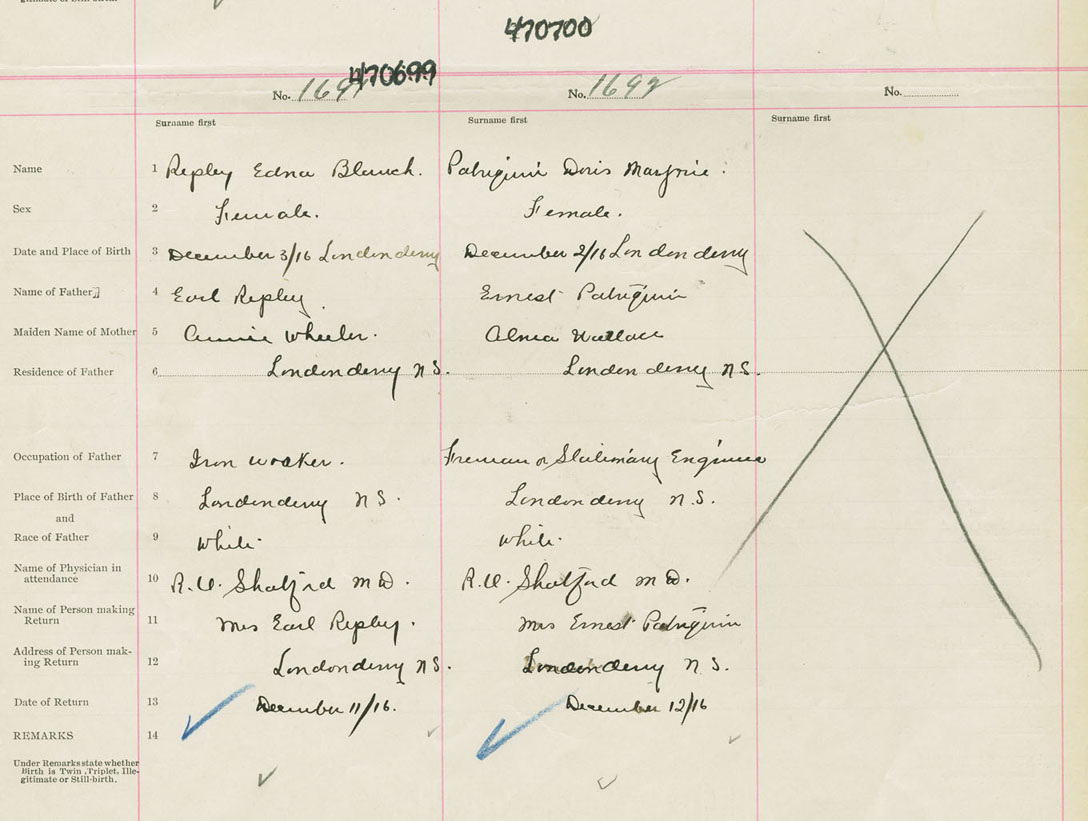 gitimate or Still-birth.
470700
470699
No. 169
No. 1692
No.
Surname first
Surname first
Surname first
Name 1 Repley Edna Blanch. Patriquin Doris Marjorie.
Sex 2 Female. Female.
Date and Place of Birth 3 December 3/16 Londonderry December 2/16 Londonderry
Name of Father 4 Earl Repley Ernest Patriquin
Maiden Name of Mother 5 Annie Wheeler. Alma Wallace
Residence of Father 6 Londonderry N S. Londonderry N S.
Occupation of Father 7 Iron worker. Fireman or Stationary Engineer
Place of Birth of Father 8 Londonderry N S. Londonderry N. S.
and
Race of Father 9 White. White.
Name of Physician in
attendance 10 Shatford M D. Shatford M D.
Name of Person making
Return 11 Mrs Earl Repley. Mrs Ernest Patriquin
Address of Person mak-
ing Return 12 Londonderry N S. Londonderry N. S.
Date of Return 13 December 11/16. December 12/16
REMARKS 14
Under Remarks state whether
Birth is Twin, Triplet, Ille-
gitimate or Still-birth.